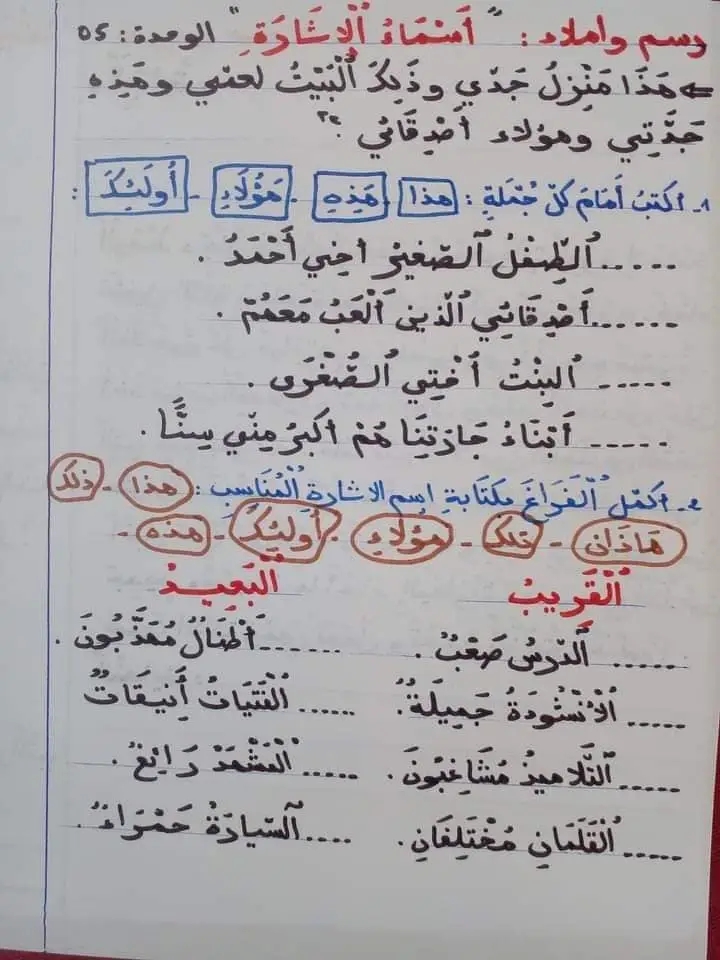 رسم واملاء : " أَسْمَاءُ الْإِشَارَةِ " الوحدة : 05
⇐ هَذَا مَنْزِلُ جَدِّي وذَلِكَ الْبَيْتُ لعمّي وهَذِهِ
جَدَّتِي وهؤلاء أصْدِقَائي .
1ـ اكتبُ أمَامَ كلّ جُملَةٍ : هذا ـ هَذِهِ ـ هَؤُلَاءِ ـ أُولَئِكَ :
..... الطِّفْلُ الصّغيرُ أخِي أَحْمَدُ .
...... أَصْدِقَائِي الّذينَ أَلْعَبُ مَعَهُمْ .
..... البِنْتُ أخْتِي الصُّغْرَى .
..... أَبْنَاءُ جَارَتِنَا هُمْ أكبرُ مِنّي سِنًّا .
2ـ اكمل الْفَرَاغَ بكتَابةِ اسم الاشارةِ الْمُنَاسِبِ : هذا ـ ذلك
هَاذَانِ ـ تلكَ ـ هؤلاءِ ـ أُولَئِكَ ـ هذه ـ
الْقَرِيبُ الْبَعِيدُ
..... الدّرسُ صَعْبٌ . ...... أطْفالٌ مُهَذَّبُونَ .
..... الْأنْشُودَةُ جَمِيلَةٌ . ...... الْفَتَيَاتُ أَنِيقَاتٌ
..... التّلاميذُ مُشَاغِبُونَ . ..... الْمَشْهَدُ رَائِعٌ .
..... الْقَلَمَانِ مُخْتَلِفَانِ . .... السّيّارَةُ حَمْرَاءُ .